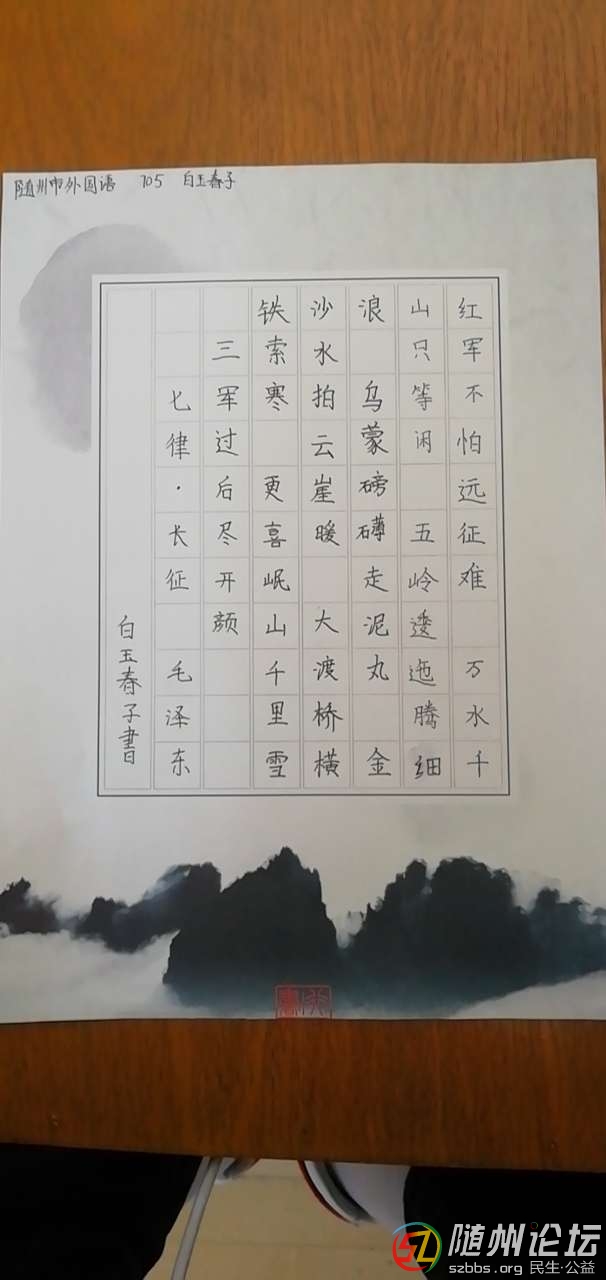 随州市外国语 705 白玉春子
红军不怕远征难 万水千
山只等闲 五岭逶迤腾细
浪 乌蒙磅礴走泥丸 金
沙水拍云崖暖 大渡桥横
铁索寒 更喜岷山千里雪
三军过后尽开颜
七律·长征 毛泽东
白玉春子書
随州论坛
szbbs.org 民生·公益